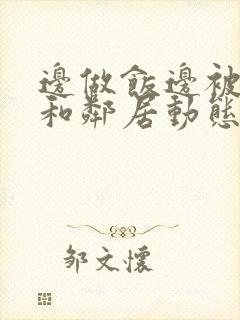 邊做飯邊被
和鄰居動態
鄒文懷